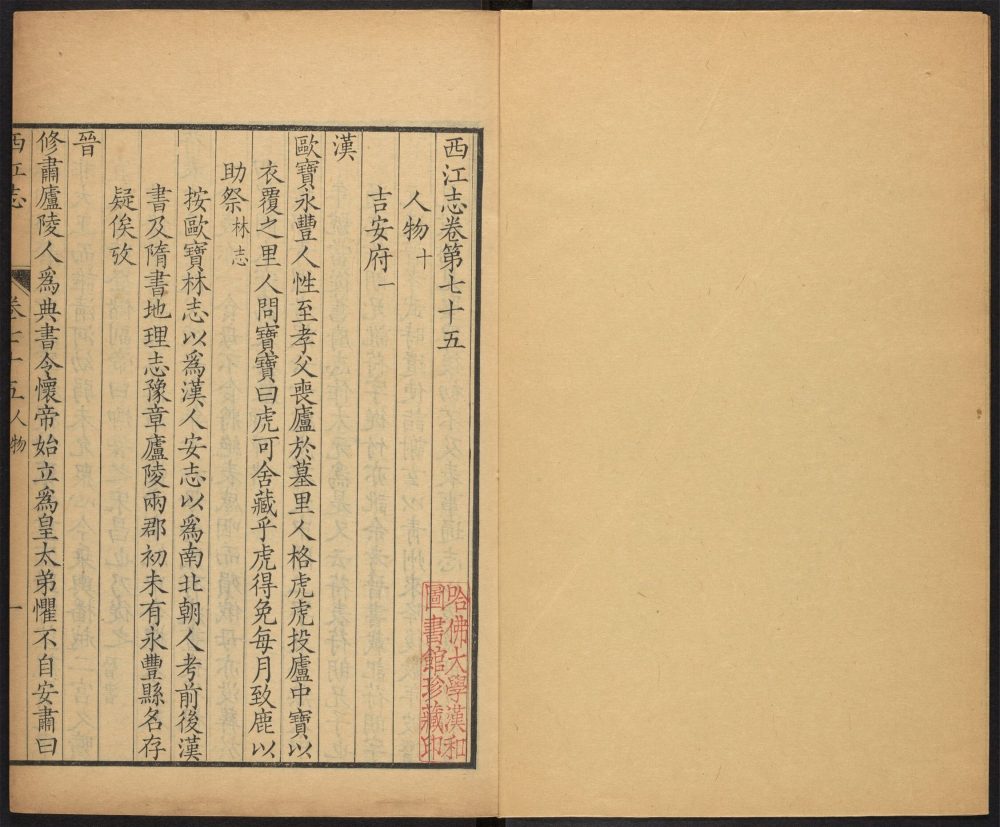 西江志卷第七十五
人物十
吉安府一
漢
歐寶永豐人性至孝父喪廬於墓里人格虎虎投廬中寶以
衣覆之里人問寶寶曰虎可舍藏乎虎得免每月致鹿以
助祭林志
按歐寶林志以爲漢人安志以爲南北朝人考前後漢
書及隋書地理志豫章廬陵兩郡初未有永豐縣名存
疑俟攷
晉
修肅廬陵人爲典書令懷帝始立爲皇太弟懼不自安肅曰
西江志 卷七十五人物 一
哈佛大學漢和
圖書館珍藏印